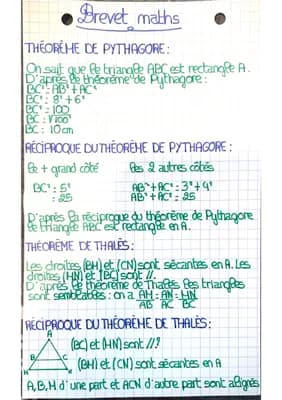 Brevet maths
THÉORÈME DE PYTHAGORE :
On sait que le triangle ABC est rectangle A.
D'après le théorème de Pythagore :
BC² = AB² + AC²
BC² = 8² + 6²
BC² = 100
BC = √100
BC = 10cm
RÉCIPROQUE DU THÉORÈME DE PYTHAGORE :
le + grand côté
les 2 autres côtés
BC² = 5²
= 25
AB² + AC² = 3² + 4²
AB² + AC² = 25
D'après la réciproque du théorème de Pythagore
le triangle ABC est rectangle en A.
THÉORÈME DE THALÈS :
Les droites (BM) et (CN) sont sécantes en A. Les
droites (MN) et (BC) sont //.
D'après le théorème de Thalès les triangles
sont semblables : on a AM = AN = MN
AB AC BC
RÉCIPROQUE DU THÉORÈME DE THALÈS :
A
(BC) et (MN) sont // ?
B C
(BM) et (CN) sont sécantes en A
M N
A, B, M d'une part et ACN d'autre part sont alignés